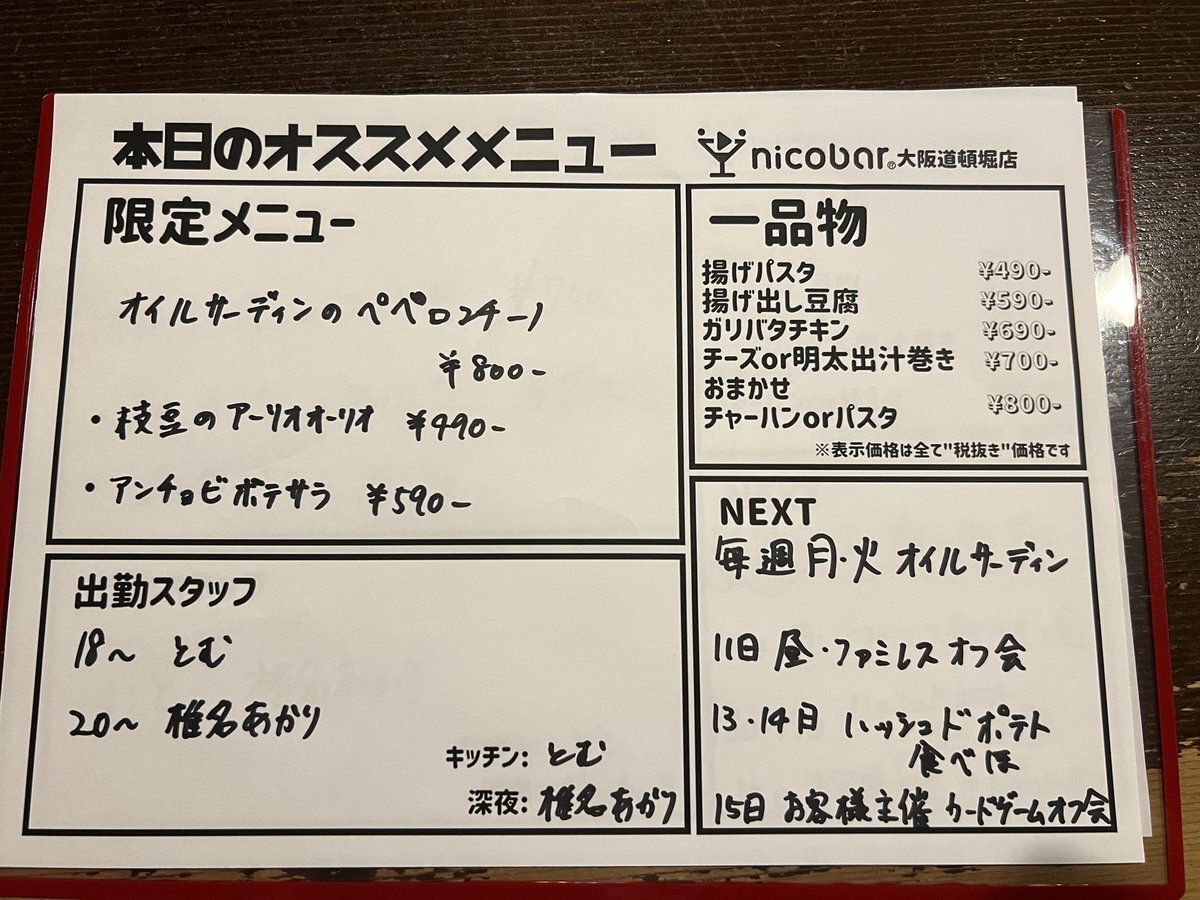 本日のオススメメニュー
nicobar® 大阪道頓堀店
限定メニュー
オイルサーディンのペペロンチーノ
¥800-
・枝豆のアーリオオーリオ ¥490-
・アンチョビポテサラ ¥590-
一品物
揚げパスタ ¥490-
揚げ出し豆腐 ¥590-
ガリバタチキン ¥690-
チーズor明太出汁巻き ¥700-
おまかせ
チャーハンorパスタ ¥800-
※表示価格は全て"税抜き"価格です
出勤スタッフ
18〜 とむ
20〜 椎名あかり
キッチン: とむ
深夜: 椎名あかり
NEXT
毎週月・火 オイルサーディン
11日 昼・ファミレスオフ会
13・14日 ハッシュドポテト
食べほ
15日 お客様主催 カードゲームオフ会